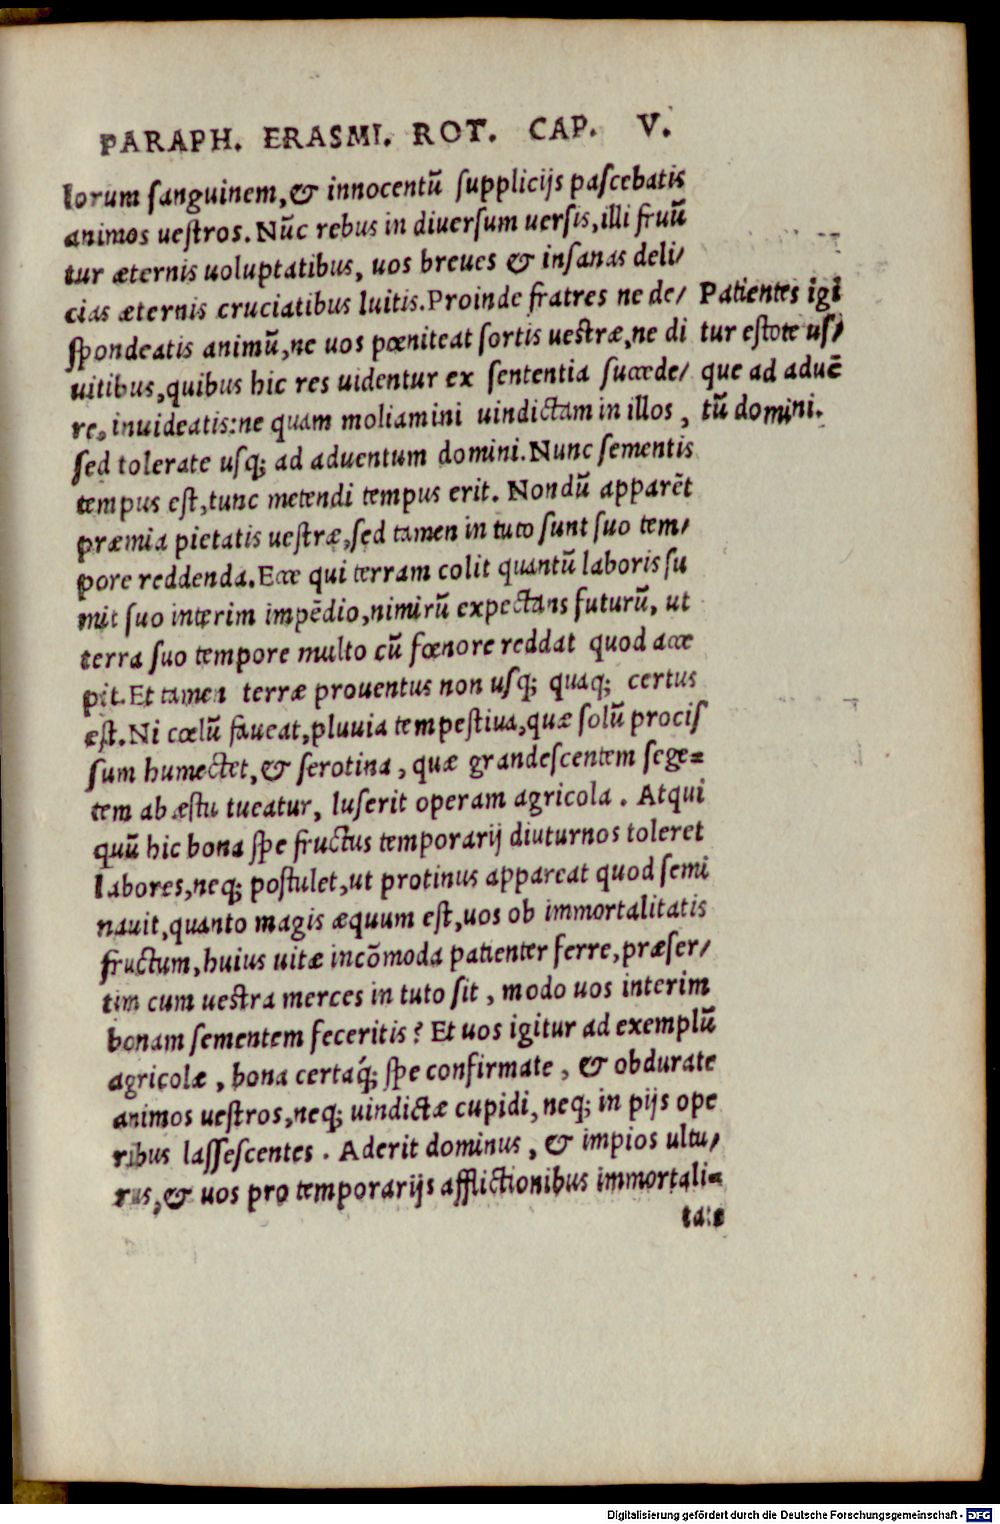 PARAPH. ERASMI. ROT. CAP. V.
lorum ſanguinem, & innocentũ ſupplicijs paſcebatis
animos ueſtros. Nũc rebus in diuerſum uerſis, illi fruũ
tur æternis uoluptatibus, uos breues & inſanas deli/
cias æternis cruciatibus luitis. Proinde fratres ne de/
ſpondeatis animũ, ne uos pœniteat ſortis ueſtræ, ne di
uitibus, quibus hic res uidentur ex ſententia ſuccede/
re, inuideatis: ne quam moliamini uindictam in illos,
ſed tolerate uſq; ad aduentum domini. Nunc ſementis
tempus eſt, tunc metendi tempus erit. Nondũ apparẽt
præmia pietatis ueſtræ, ſed tamen in tuto ſunt ſuo tem/
pore reddenda. Ecce qui terram colit quantũ laboris ſu
mit ſuo interim impẽdio, nimirũ expectans futurũ, ut
terra ſuo tempore multo cũ fœnore reddat quod acce
pit. Et tamen terræ prouentus non uſq; quaq; certus
eſt. Ni cœlũ faueat, pluuia tempeſtiua, quæ ſolũ prociſ
ſum humectet, & ſerotina, quæ grandeſcentem ſege=
tem ab æſtu tueatur, luſerit operam agricola. Atqui
quũ hic bona ſpe fructus temporarij diuturnos toleret
labores, neq; poſtulet, ut protinus appareat quod ſemi
nauit, quanto magis æquum eſt, uos ob immortalitatis
fructum, huius uitæ incõmoda patienter ferre, præſer/
tim cum ueſtra merces in tuto ſit, modo uos interim
bonam ſementem feceritis? Et uos igitur ad exemplũ
agricolæ, bona certaq́; ſpe confirmate, & obdurate
animos ueſtros, neq; uindictæ cupidi, neq; in pijs ope
ribus laſſeſcentes. Aderit dominus, & impios ultu/
rus, & uos pro temporarijs afflictionibus immortali=
tate
Patientes igi
tur eſtote uſ/
que ad aduẽ
tũ domini.
Digitalisierung gefördert durch die Deutsche Forschungsgemeinschaft - DFG